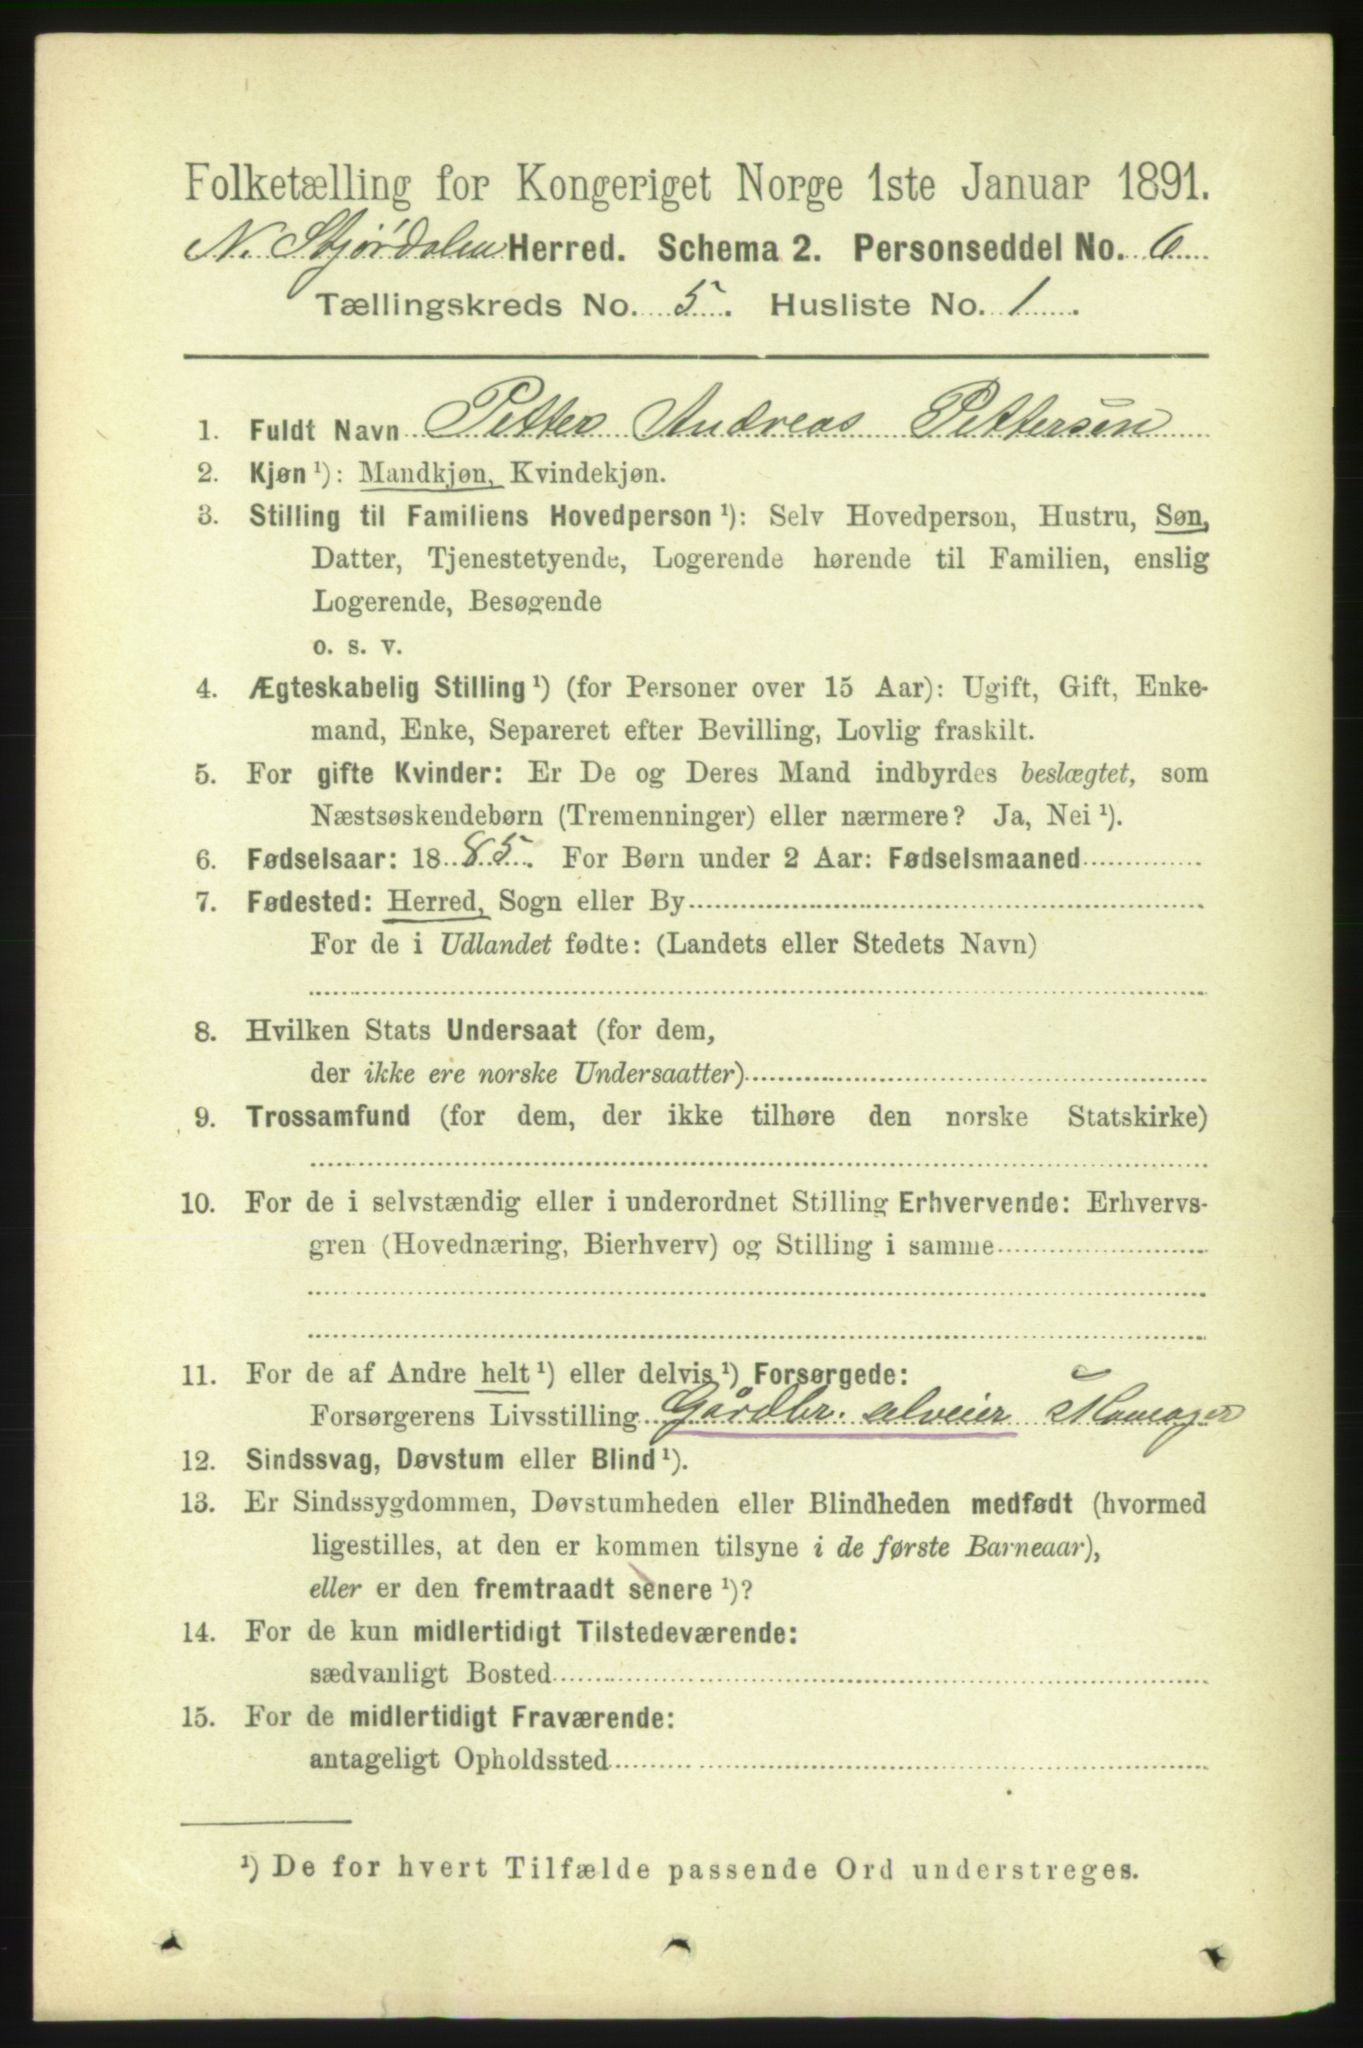 Folketælling for Kongeriget Norge 1ste Januar 1891.
N. Stjørdalen Herred. Schema 2. Personseddel No. 6
Tællingskreds No. 5. Husliste No. 1.
1. Fuldt Navn Petter Andreas Pettersen
2. Kjøn ¹): Mandkjøn, Kvindekjøn.
3. Stilling til Familiens Hovedperson ¹): Selv Hovedperson, Hustru, Søn,
Datter, Tjenestetyende, Logerende hørende til Familien, enslig
Logerende, Besøgende
o. s. v.
4. Ægteskabelig Stilling ¹) (for Personer over 15 Aar): Ugift, Gift, Enke-
mand, Enke, Separeret efter Bevilling, Lovlig fraskilt.
5. For gifte Kvinder: Er De og Deres Mand indbyrdes beslægtet, som
Næstsøskendebørn (Tremenninger) eller nærmere? Ja, Nei ¹).
6. Fødselsaar: 1885. For Børn under 2 Aar: Fødselsmaaned
7. Fødested: Herred, Sogn eller By
For de i Udlandet fødte: (Landets eller Stedets Navn)
8. Hvilken Stats Undersaat (for dem,
der ikke ere norske Undersaatter)
9. Trossamfund (for dem, der ikke tilhøre den norske Statskirke)
10. For de i selvstændig eller i underordnet Stilling Erhvervende: Erhvervs-
gren (Hovednæring, Bierhverv) og Stilling i samme
11. For de af Andre helt ¹) eller delvis ¹) Forsørgede:
Forsørgerens Livsstilling Gårdbr. selveier Skomager
12. Sindssvag, Døvstum eller Blind ¹).
13. Er Sindssygdommen, Døvstumheden eller Blindheden medfødt (hvormed
ligestilles, at den er kommen tilsyne i de første Barneaar),
eller er den fremtraadt senere ¹)?
14. For de kun midlertidigt Tilstedeværende:
sædvanligt Bosted
15. For de midlertidigt Fraværende:
antageligt Opholdssted
¹) De for hvert Tilfælde passende Ord understreges.